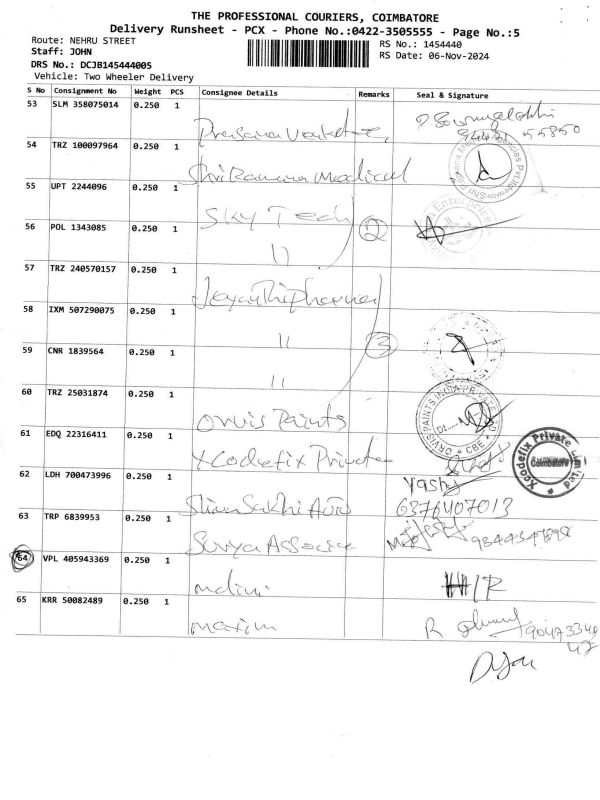 THE PROFESSIONAL COURIERS, COIMBATORE
Delivery Runsheet - PCX - Phone No.:0422-3505555 - Page No.:5
Route: NEHRU STREET
Staff: JOHN
DRS No.: DCJB145444005
Vehicle: Two Wheeler Delivery
RS No.: 1454440
RS Date: 06-Nov-2024
S No Consignment No Weight PCS Consignee Details Remarks Seal & Signature
53 SLM 358075014 0.250 1
54 TRZ 100097964 0.250 1 Shri Ramana Medical
55 UPT 2244096 0.250 1 Sky Tech
56 POL 1343085 0.250 1 11 2
57 TRZ 240570157 0.250 1 Jeyanthi pharma
58 IXM 507290075 0.250 1 11
59 CNR 1839564 0.250 1 11 3
60 TRZ 25031874 0.250 1 Orvis Paints ORVIS PAINTS INDIA PRIVATE CBE
61 EDQ 22316411 0.250 1 Xcodefix Private Xcodefix Private Limited Coimbatore
62 LDH 700473996 0.250 1 Shiva Sakthi Auto Yash 6376407013
63 TRP 6839953 0.250 1 Surya Associa
64 VPL 405943369 0.250 1
65 KRR 50082489 0.250 1 maxim R